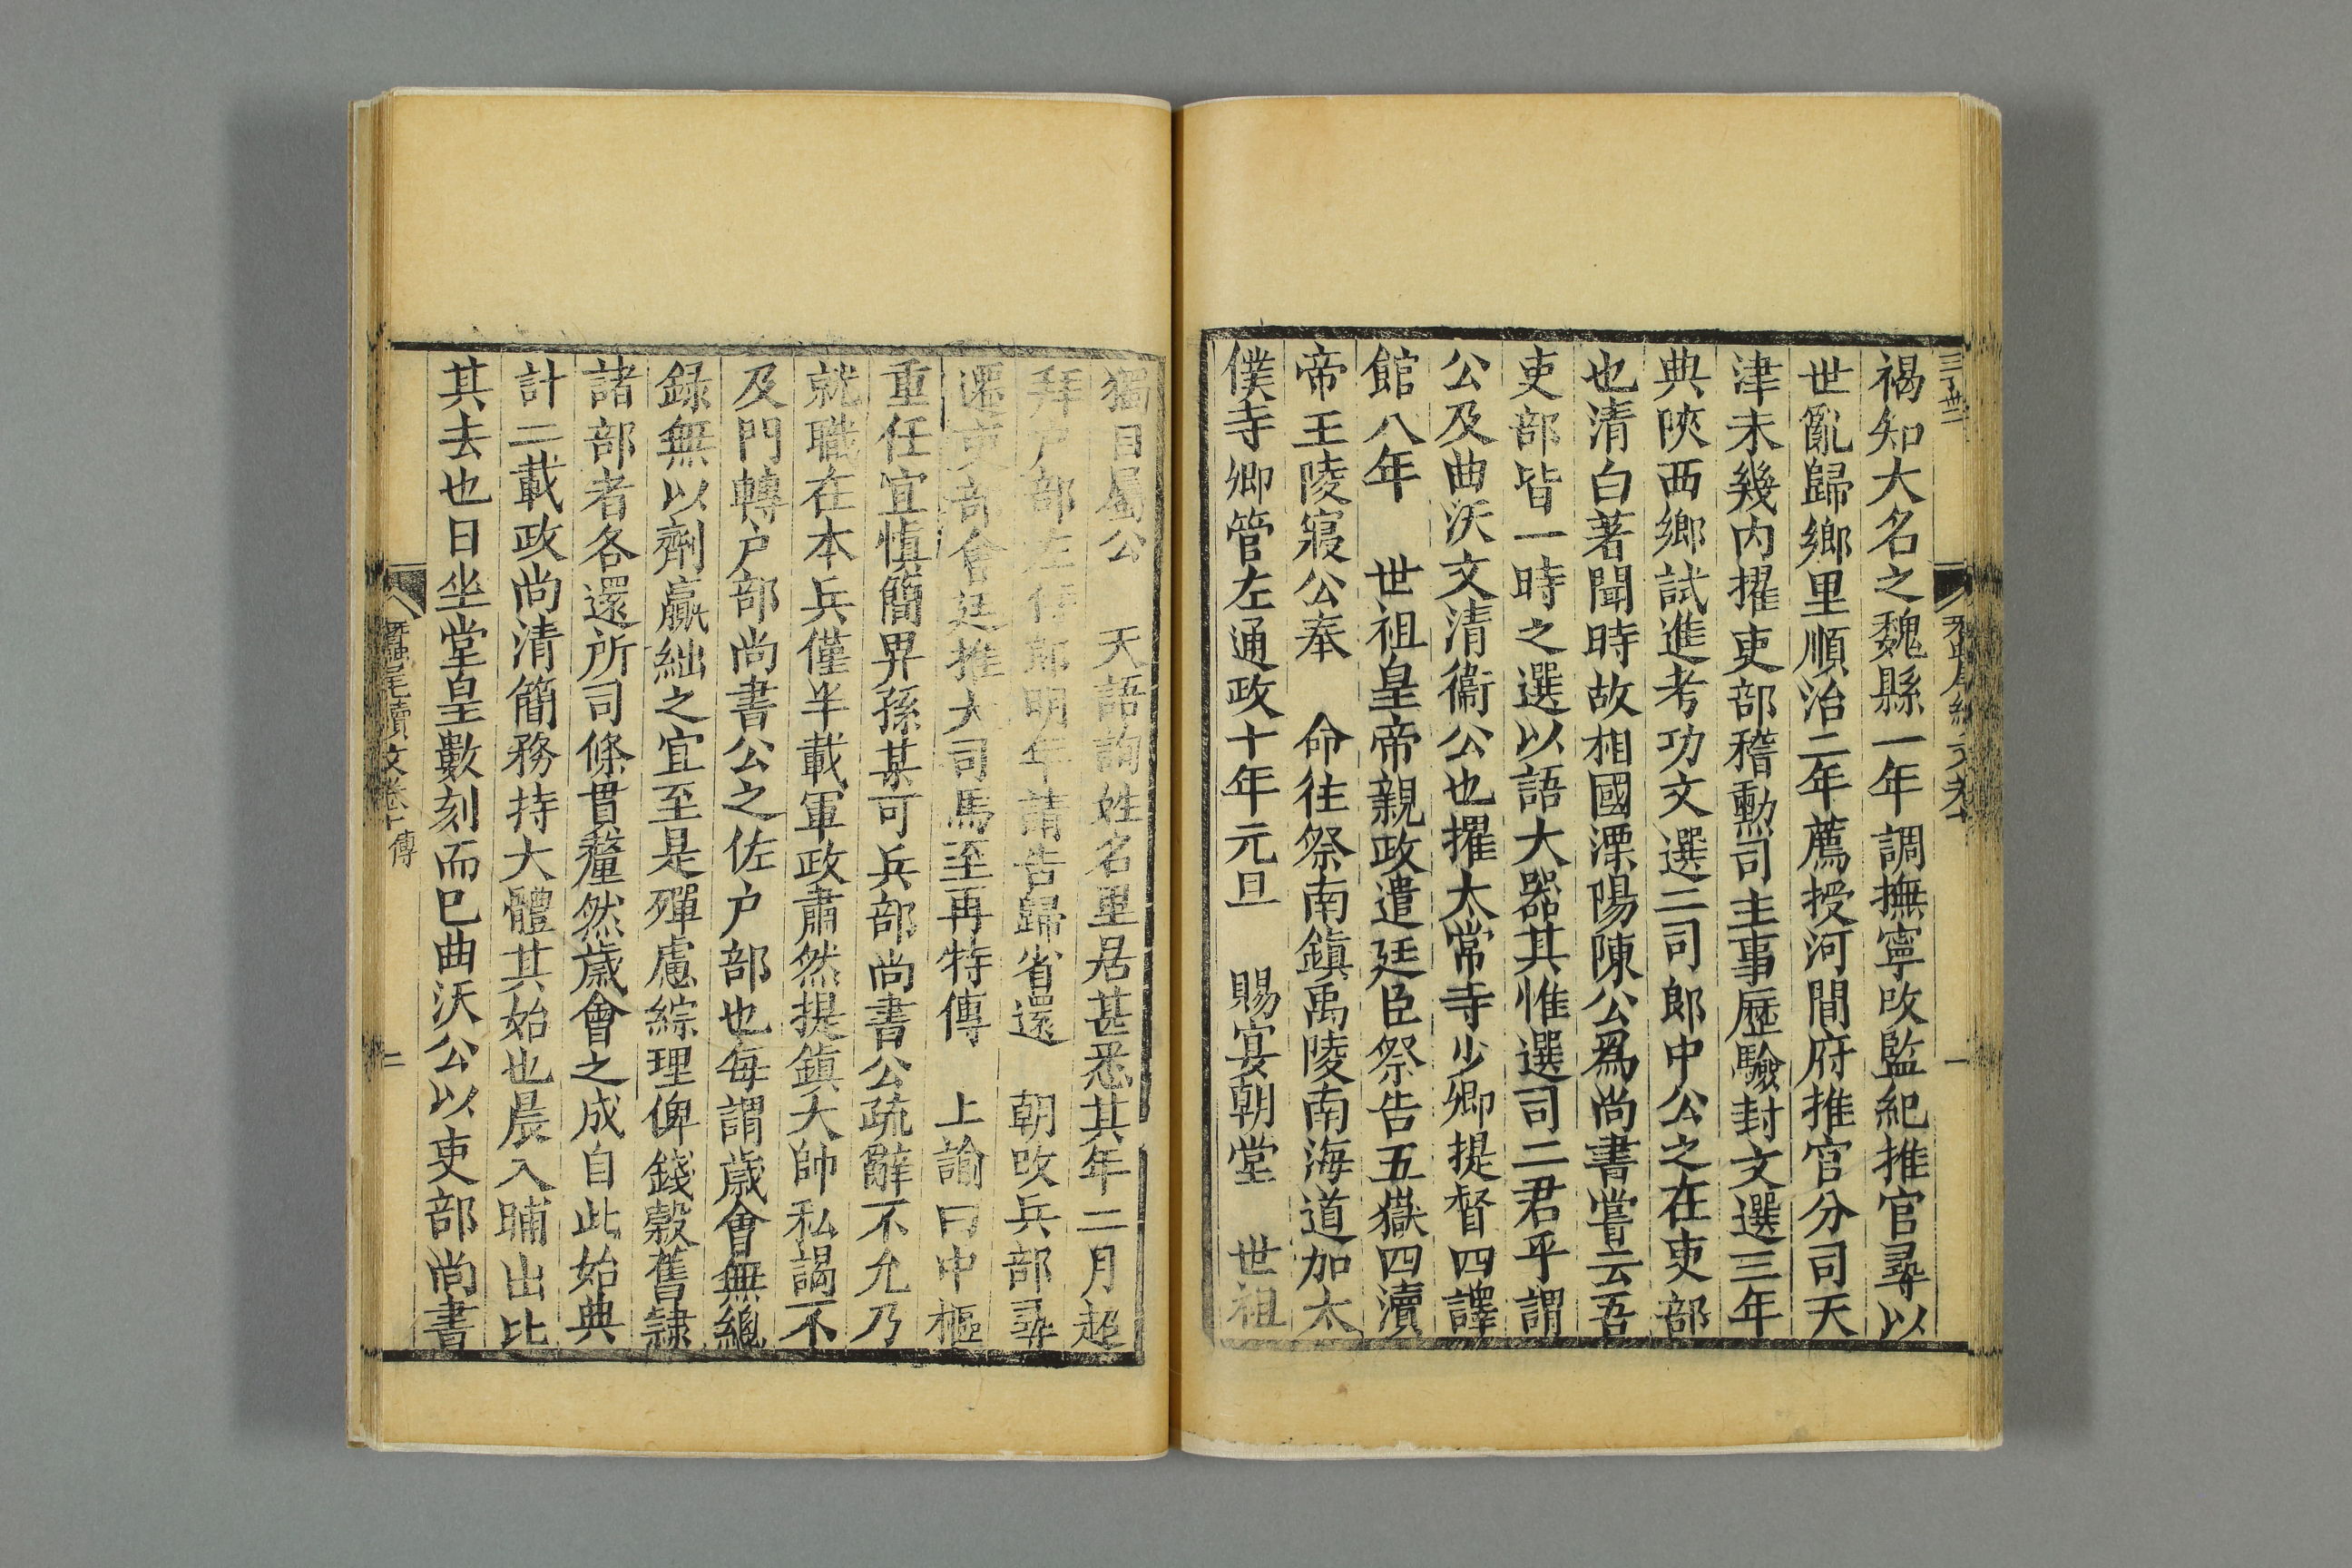 褐知大名之魏縣一年調撫寧改監紀推官尋以
世亂歸鄉里順治二年薦授河間府推官分司天
津未幾內擢吏部稽勳司主事歷驗封文選三年
典陝西鄉試進考功文選二司郎中公之在吏部
也清白著聞時故相國溧陽陳公爲尚書嘗云吾
吏部皆一時之選以語大器其惟選司二君乎謂
公及曲沃文清衞公也擢太常寺少卿提督四譯
館八年 世祖皇帝親政遣廷臣祭告五嶽四瀆
帝王陵寢公奉 命往祭南鎭禹陵南海道加太
僕寺卿管左通政十年元旦 賜宴朝堂 世祖
獨目屬公 天語詢姓名里居甚悉其年二月超
拜户部左侍郎明年請告歸省還 朝改兵部尋
還吏部會廷推大司馬至再特傳 上諭曰中樞
重任宜愼簡畀孫某可兵部尚書公疏辭不允乃
就職在本兵僅半載軍政肅然提鎭大帥私謁不
及門轉户部尚書公之佐户部也每謂歲會無總
錄無以劑贏絀之宜至是殫慮綜理俾錢穀舊隷
諸部者各還所司條貫釐然歲會之成自此始典
計二載政尚清簡務持大體其始也晨入晡出比
其去也日坐堂皇數刻而已曲沃公以吏部尚書
蠶尾續文卷十 傳 二